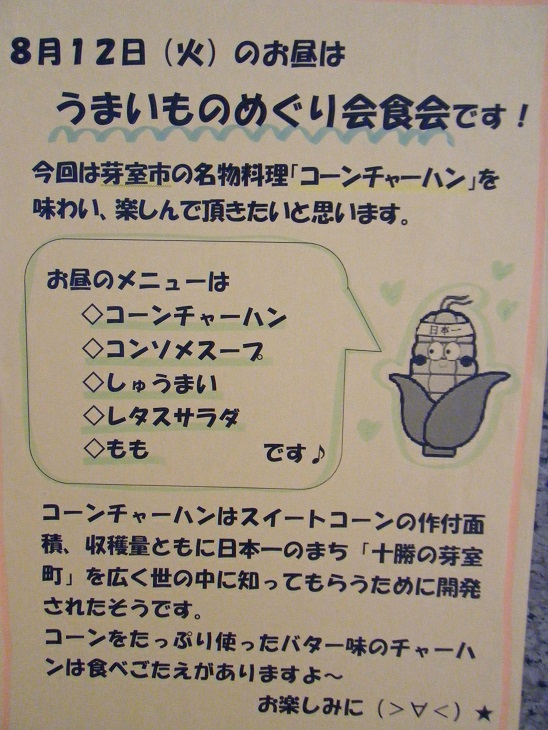 8月12日（火）のお昼は
うまいものめぐり会食会です！
今回は芽室市の名物料理「コーンチャーハン」を
味わい、楽しんで頂きたいと思います。
お昼のメニューは
◇コーンチャーハン
◇コンソメスープ
◇しゅうまい
◇レタスサラダ
◇もも です♪
日本一
コーンチャーハンはスイートコーンの作付面
積、収穫量ともに日本一のまち「十勝の芽室
町」を広く世の中に知ってもらうために開発
されたそうです。
コーンをたっぷり使ったバター味のチャーハ
ンは食べごたえがありますよ～
お楽しみに（＞∀＜）★